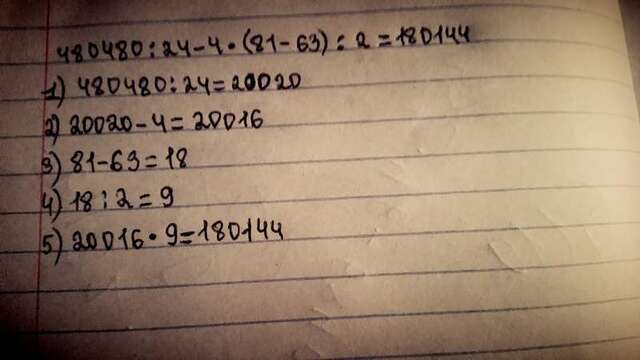 480480:24-4•(81-63):2=180144
1) 480480:24=20020
2) 20020-4=20016
3) 81-63=18
4) 18:2=9
5) 20016•9=180144